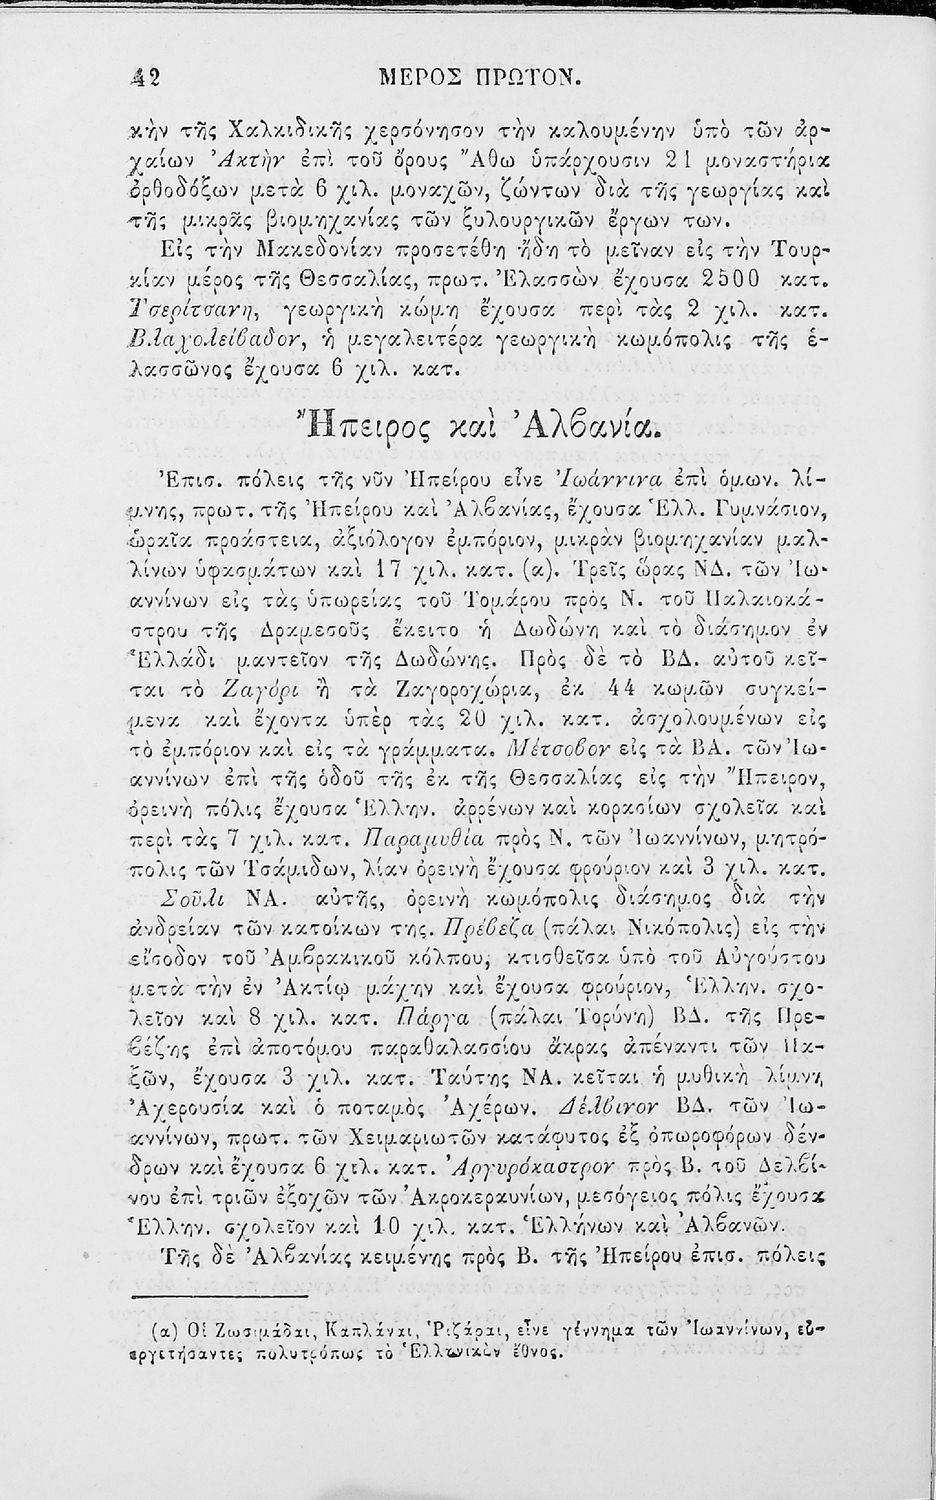 42 ΜΕΡΟΣ ΠΡΩΤΟΝ.
κὴν τῆς Χαλκιδικῆς χερσόνησον τὴν καλουμένην ὑπὸ τῶν ἀρ-
χαίων Ἀκτὴν ἐπὶ τοῦ ὄρους Ἄθω ὑπάρχουσιν 21 μοναστήρια
ὀρθοδόξων μετὰ 6 χιλ. μοναχῶν, ζώντων διὰ τῆς γεωργίας καὶ
τῆς μικρᾶς βιομηχανίας τῶν ξυλουργικῶν ἔργων των.
Εἰς τὴν Μακεδονίαν προσετέθη ἤδη τὸ μεῖναν εἰς τὴν Τουρ-
κίαν μέρος τῆς Θεσσαλίας, πρωτ. Ἐλασσὼν ἔχουσα 2500 κατ.
Τσερίτσανη, γεωργικὴ κώμη ἔχουσα περὶ τὰς 2 χιλ. κατ.
Βλαχολείβαδον, ἡ μεγαλειτέρα γεωργικὴ κωμόπολις τῆς ἐ-
λασσῶνος ἔχουσα 6 χιλ. κατ.
Ἤπειρος καὶ Ἀλβανία.
Ἐπισ. πόλεις τῆς νῦν Ἠπείρου εἶνε Ἰωάννινα ἐπὶ ὁμων. λί-
μνης, πρωτ. τῆς Ἠπείρου καὶ Ἀλβανίας, ἔχουσα Ἑλλ. Γυμνάσιον,
ὡραῖα προάστεια, ἀξιόλογον ἐμπόριον, μικρὰν βιομηχανίαν μαλ-
λίνων ὑφασμάτων καὶ 17 χιλ. κατ. (α). Τρεῖς ὥρας ΝΔ. τῶν Ἰω-
αννίνων εἰς τὰς ὑπωρείας τοῦ Τομάρου πρὸς Ν. τοῦ Παλαιοκά-
στρου τῆς Δραμεσοῦς ἔκειτο ἡ Δωδώνη καὶ τὸ διάσημον ἐν
Ἑλλάδι μαντεῖον τῆς Δωδώνης. Πρὸς δὲ τὸ ΒΔ. αὐτοῦ κεῖ-
ται τὸ Ζαγόρι ἢ τὰ Ζαγοροχώρια, ἐκ 44 κωμῶν συγκεί-
μενα καὶ ἔχοντα ὑπὲρ τὰς 20 χιλ. κατ. ἀσχολουμένων εἰς
τὸ ἐμπόριον καὶ εἰς τὰ γράμματα. Μέτσοβον εἰς τὰ ΒΑ. τῶν Ἰω-
αννίνων ἐπὶ τῆς ὁδοῦ τῆς ἐκ τῆς Θεσσαλίας εἰς τὴν Ἤπειρον,
ὀρεινὴ πόλις ἔχουσα Ἑλλην. ἀρρένων καὶ κορασίων σχολεῖα καὶ
περὶ τὰς 7 χιλ. κατ. Παραμυθία πρὸς Ν. τῶν Ἰωαννίνων, μητρό-
πολις τῶν Τσάμιδων, λίαν ὀρεινὴ ἔχουσα φρούριον καὶ 3 χιλ. κατ.
Σοῦλι ΝΑ. αὐτῆς, ὀρεινὴ κωμόπολις διάσημος διὰ τὴν
ἀνδρείαν τῶν κατοίκων της. Πρέβεζα (πάλαι Νικόπολις) εἰς τὴν
εἴσοδον τοῦ Ἀμβρακικοῦ κόλπου, κτισθεῖσα ὑπὸ τοῦ Αὐγούστου
μετὰ τὴν ἐν Ἀκτίῳ μάχην καὶ ἔχουσα φρούριον, Ἑλλην. σχο-
λεῖον καὶ 8 χιλ. κατ. Πάργα (πάλαι Τορύνη) ΒΔ. τῆς Πρε-
βέζης ἐπὶ ἀποτόμου παραθαλασσίου ἄκρας ἀπέναντι τῶν Πα-
ξῶν, ἔχουσα 3 χιλ. κατ. Ταύτης ΝΑ. κεῖται ἡ μυθικὴ λίμνη
Ἀχερουσία καὶ ὁ ποταμὸς Ἀχέρων. Δέλβινον ΒΔ. τῶν Ἰω-
αννίνων, πρωτ. τῶν Χειμαριωτῶν κατάφυτος ἐξ ὀπωροφόρων δέν-
δρων καὶ ἔχουσα 6 χιλ. κατ. Ἀργυρόκαστρον πρὸς Β. τοῦ Δελβί-
νου ἐπὶ τριῶν ἐξοχῶν τῶν Ἀκροκεραυνίων, μεσόγειος πόλις ἔχουσα
Ἑλλην. σχολεῖον καὶ 10 χιλ. κατ. Ἑλλήνων καὶ Ἀλβανῶν.
Τῆς δὲ Ἀλβανίας κειμένης πρὸς Β. τῆς Ἠπείρου ἐπισ. πόλεις
(α) Οἱ Ζωσιμάδαι, Καπλάναι, Ῥιζάραι, εἶνε γέννημα τῶν Ἰωαννίνων, εὐ-
εργετήσαντες πολυτρόπως τὸ Ἑλληνικὸν ἔθνος.